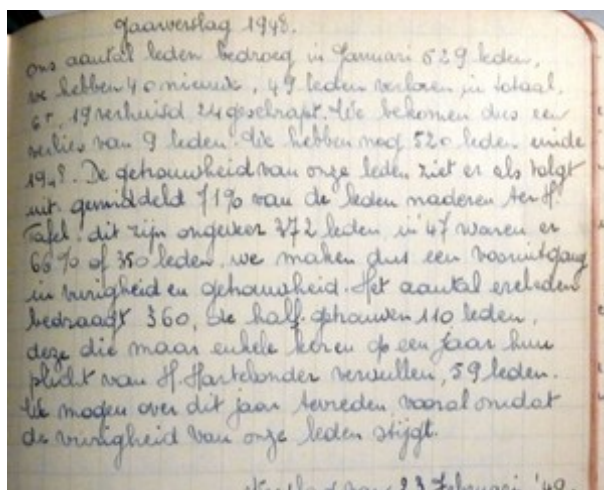 Jaarverslag 1948.
ons aantal leden bedroeg in Januari 529 leden,
we hebben 40 nieuwe, 49 leden verloren in totaal,
6 +, 19 verhuisd 24 geschrapt. We bekomen dus een
verlies van 9 leden. We hebben nog 520 leden einde
1948. De getrouwheid van onze leden ziet er als volgt
uit. gemiddeld 71% van de leden naderen ter H.
Tafel. dit zijn ongeveer 372 leden, in 47 waren er
66% of 350 leden. we maken dus een vooruitgang
in vurigheid en getrouwheid. Het aantal ereleden
bedraagt 360, de half. getrouwen 110 leden,
deze die maar enkele keren op een jaar hun
plicht van H. Hartebonder vervullen, 59 leden.
We mogen over dit jaar tevreden, vooral omdat
de vurigheid van onze leden stijgt.
23 Februari '49.